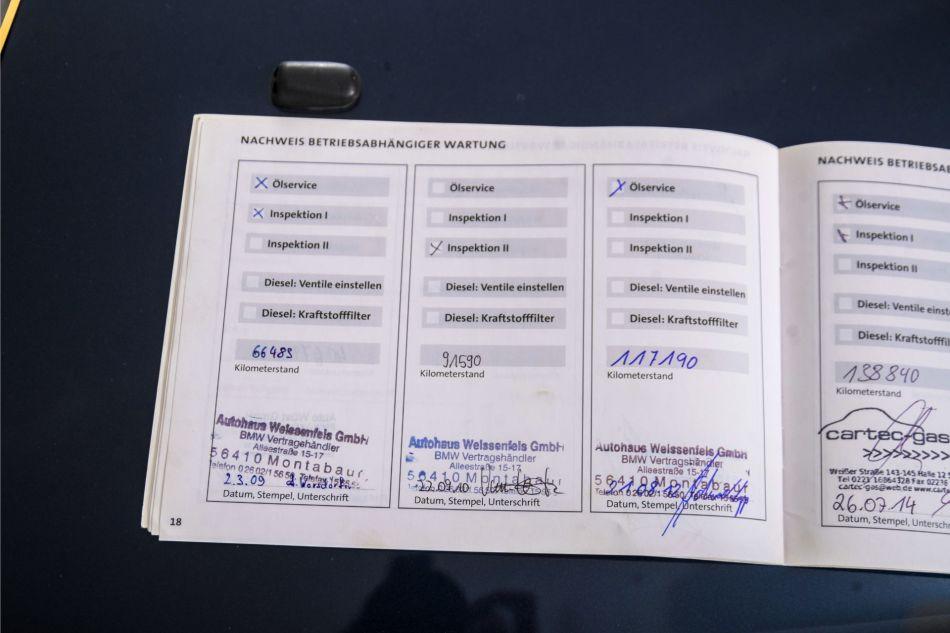 NACHWEIS BETRIEBSABHÄNGIGER WARTUNG
Ölservice
Inspektion I
Inspektion II
Diesel: Ventile einstellen
Diesel: Kraftstofffilter
66485
Kilometerstand
Autohaus Weissenfels GmbH
BMW Vertragshändler
Alleestraße 15-17
56410 Montabaur
Telefon 02602/15650
2.3.09
Datum, Stempel, Unterschrift
Ölservice
Inspektion I
Inspektion II
Diesel: Ventile einstellen
Diesel: Kraftstofffilter
91590
Kilometerstand
Autohaus Weissenfels GmbH
BMW Vertragshändler
Alleestraße 15-17
56410 Montabaur
Datum, Stempel, Unterschrift
Ölservice
Inspektion I
Inspektion II
Diesel: Ventile einstellen
Diesel: Kraftstofffilter
117190
Kilometerstand
Autohaus Weissenfels GmbH
BMW Vertragshändler
Alleestraße 15-17
56410 Montabaur
Telefon 02602/15650
Datum, Stempel, Unterschrift
18
NACHWEIS BETRIEBSA
Ölservice
Inspektion I
Inspektion II
Diesel: Ventile einst
Diesel: Kraftstofff
138840
Kilometerstand
cartec-gas
Weißer Straße 143-145
26.07.14
Datum, Stempel, Unterschrift